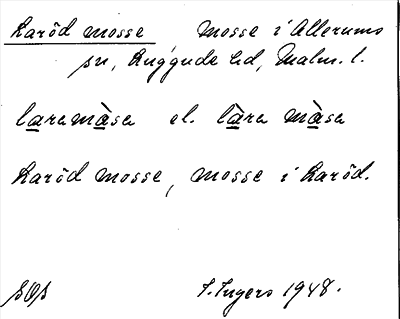 Laröd mosse Mosse i Allerums
sn, Luggude hd, Malm. l.
laramàsa el. làra màsa
Laröd mosse, mosse i Laröd.
I. Ingers 1948.